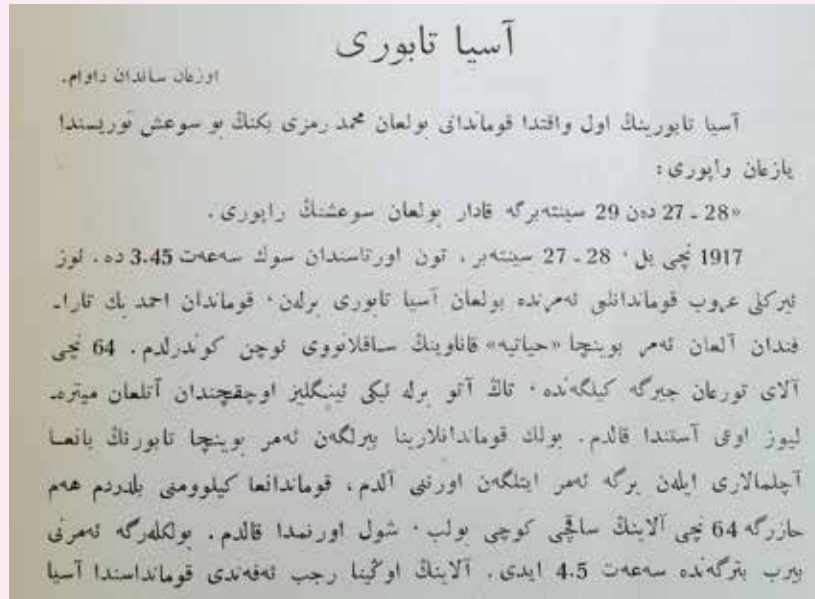 آسيا تابورى
اوزعان ساندان داوام.
آسيا تابورينڭ اول واقتدا قوماندانى بولعان محمد رمزى بكنڭ بو سوعش توريسندا
يازعان راپورى:
«28 ـ 27 دەن 29 سينتەبرگە قادار بولعان سوعشنڭ راپورى.
1917 نچى يل، 28 ـ 27 سينتەبر، تون اورتاسندان سوڭ سەعەت 3.45 دە. ئوز
ئيركلى عروب قوماندانلى ئەمرندە بولعان آسيا تابورى برلەن، قوماندان احمد بك تارا‎ـ
فندان آلعان ئەمر بوينچا «حياتيە» قاناوينڭ ساقلانووى ئوچن كوندرلدم. 64 نچى
آلاى تورعان جيرگە كيلگەندە، تاڭ آتو برلە ئيكى ئينگليز اوچقچندان آتلعان ميترە‎ـ
ليوز اوعى آستندا قالدم. بولك قوماندانلارينا بيرلگەن ئەمر بوينچا تابورنڭ يانعا
آچلمالارى ايلەن برگە ئەمر ايتلگەن اورننى آلدم، قوماندانعا كيلوومنى بلدردم هەم
حازرگە 64 نچى آلاينڭ ساقچى كوچى بولب، شول اورنمدا قالدم. بولكلەرگە ئەمرنى
بيرب بترگەندە سەعەت 4.5 ايدى. آلاينڭ اوڭينا رجب ئەفەندى قومانداسندا آسيا